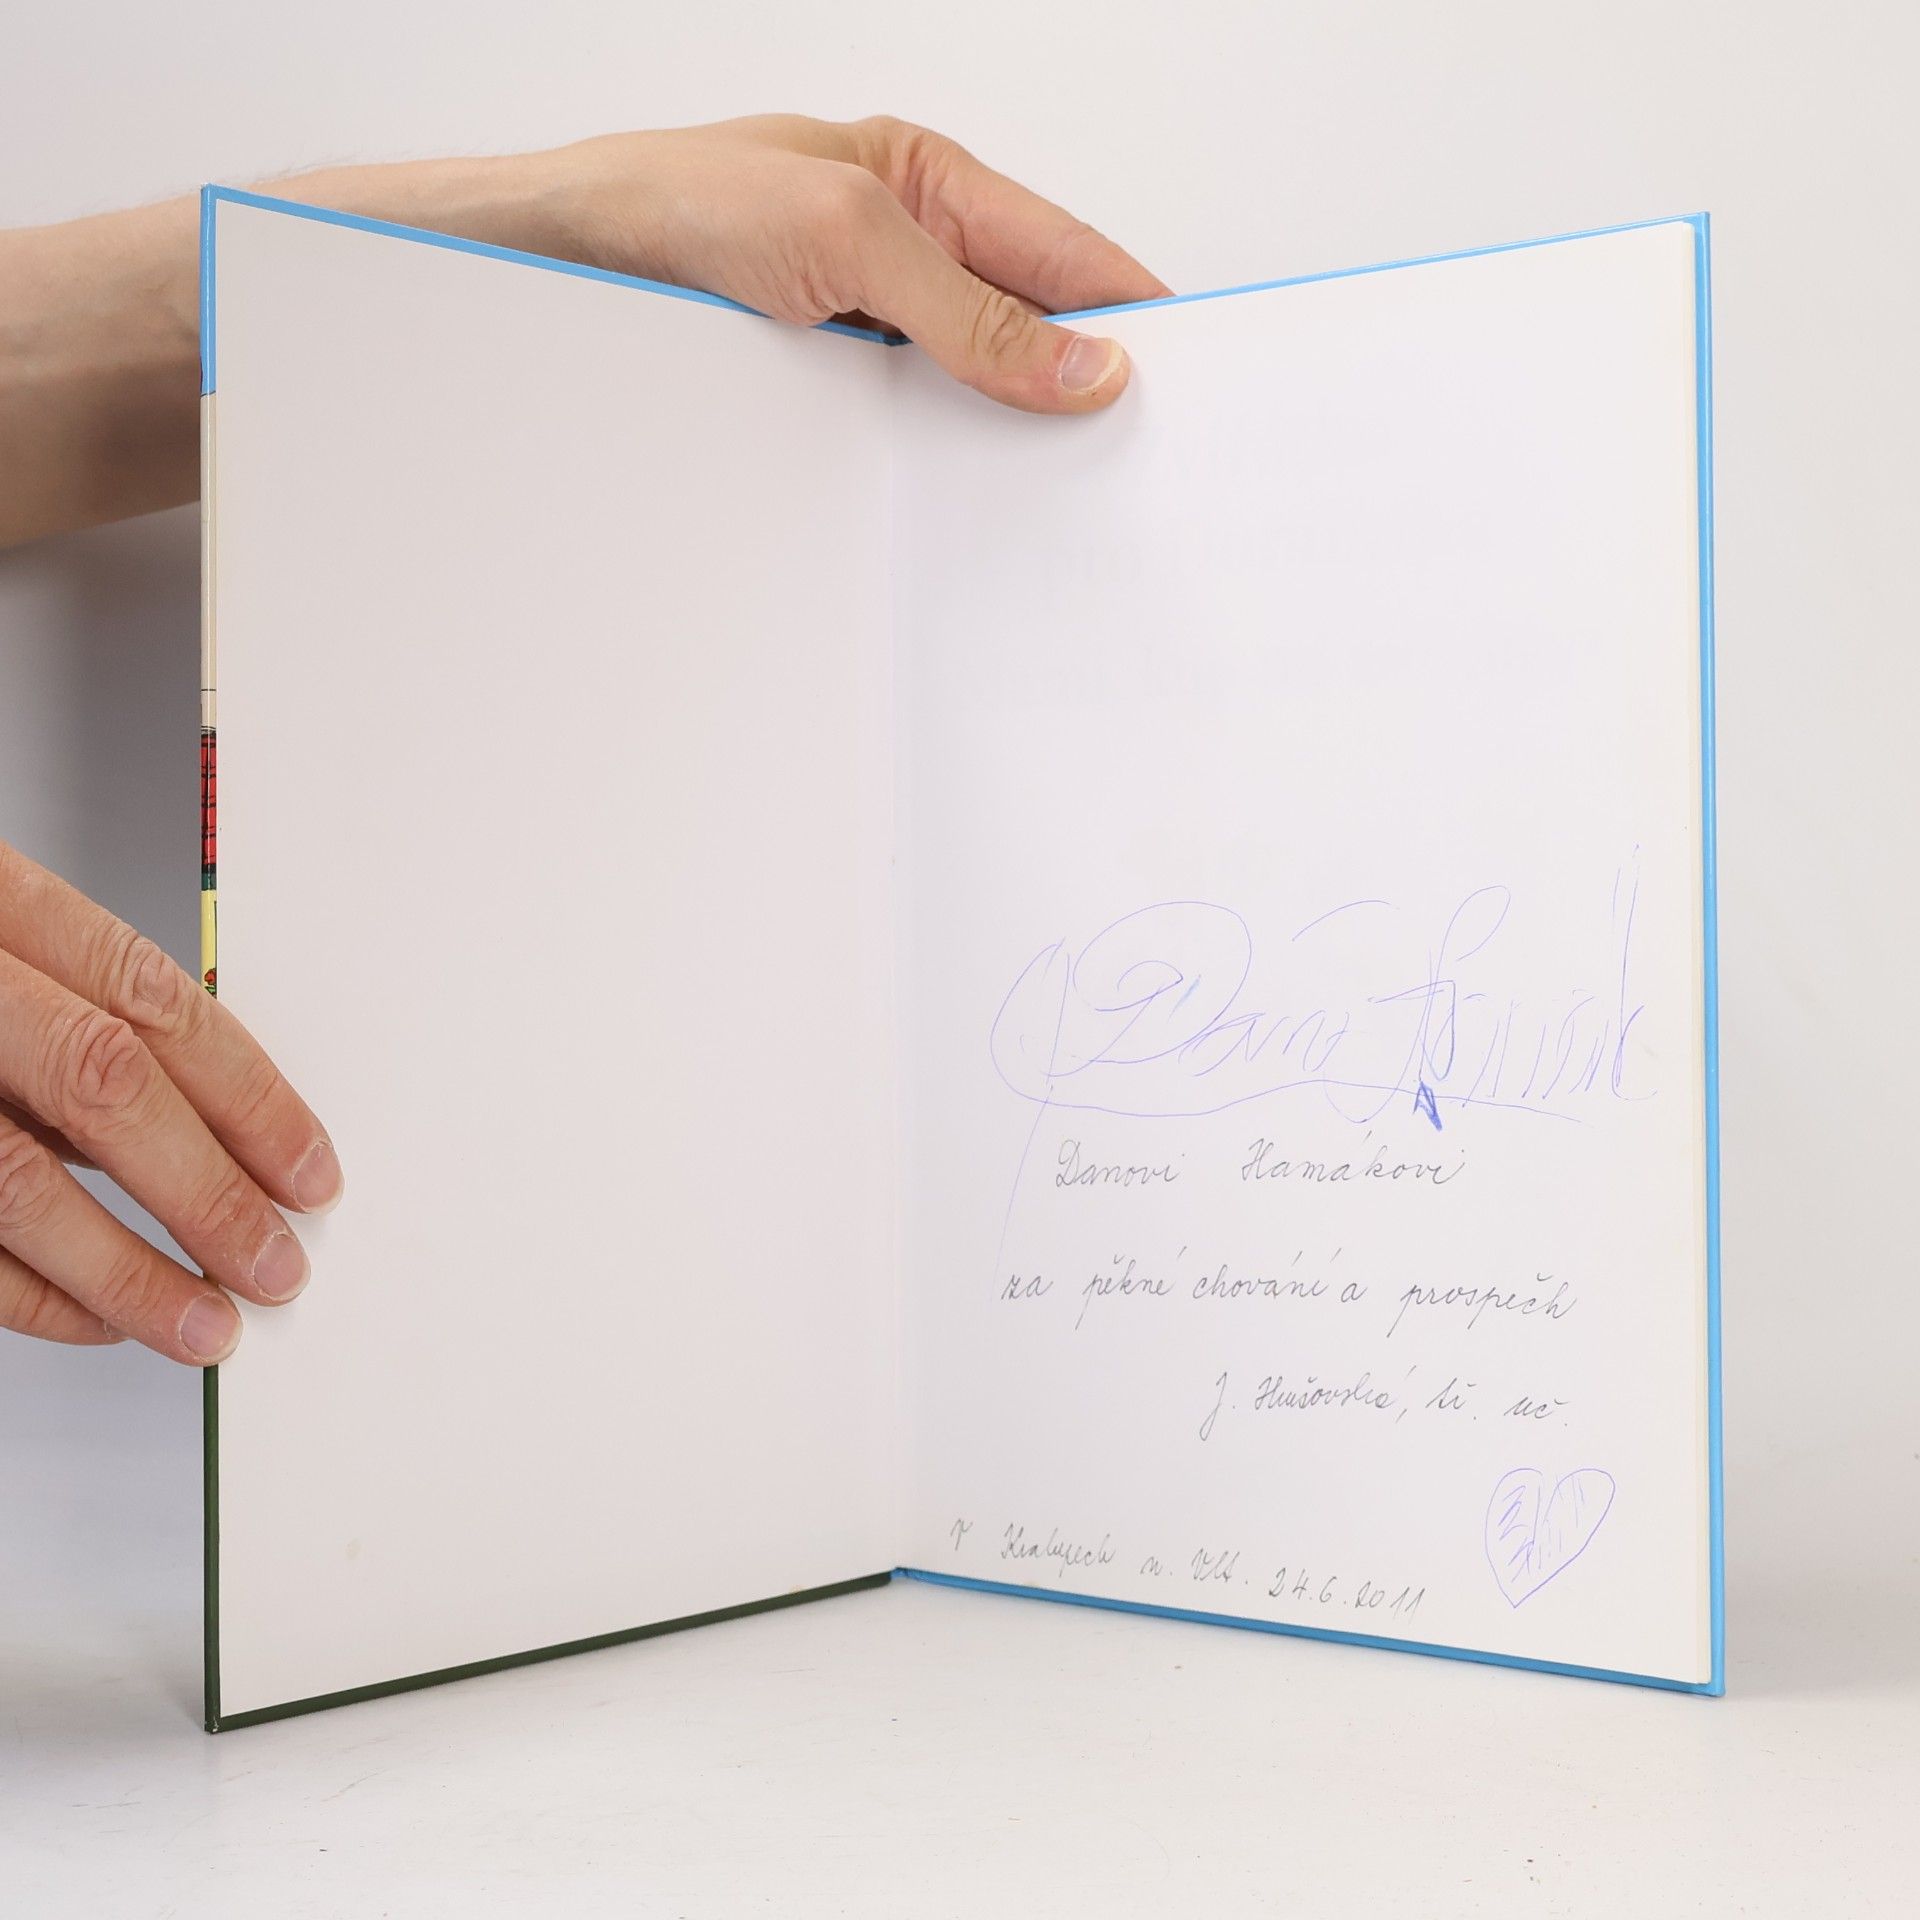 Danovi Hamákovi
za pěkné chování a prospěch
J. Hrušovská, tř. uč.
V Kralupech n. Vlt. 24.6.2011